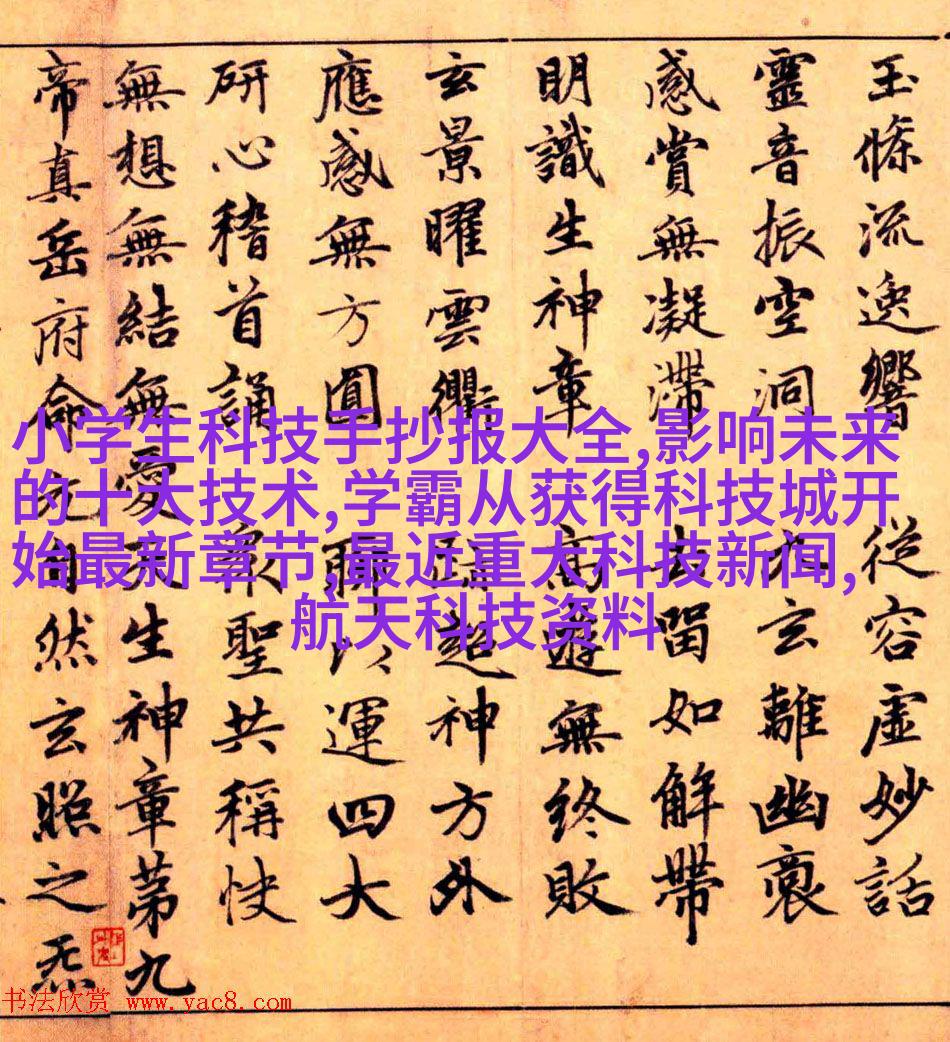 玉條流逸響 從容虛妙話
靈音振空洞 玄離幽裛
感賞無凝滯 去留如解帶
明識生神章 高遊無終敗
玄景曜雲衢 超神方外
應感無方圓 聊以運四大
研心稽首誦 衆聖共稱快
無想無結無愛天生神章第九
帝真岳府命元自然玄照之炁
小学生科技手抄报大全,影响未来
的十大技术,学霸从获得科技城开
始最新章节,最近重大科技新闻,
航天科技资料
书法欣赏 www.yac8.com